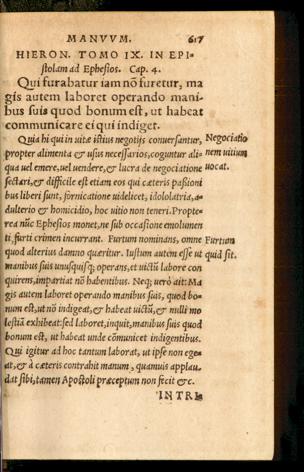 MANVVM. 617
HIERON. TOMO IX. IN EPI-
stolam ad Ephesios. Cap. 4.
Qui furabatur iam nõ furetur, ma
gis autem laboret operando mani-
bus suis quod bonum est, ut habeat
communicare ei qui indiget.
Quia hi qui in uitæ istius negotijs conuersantur,
propter alimenta & usus necessarios, coguntur ali-
qua uel emere, uel uendere, & lucra de negociatione
sectari, & difficile est etiam eos qui cæteris paßioni
bus liberi sunt, fornicatione uidelicet, idololatria, a-
dulterio & homicidio, hoc uitio non teneri. Propte-
rea nũc Ephesios monet, ne sub occasione emolumen
ti, furti crimen incurrant. Furtum nominans, omne
quod alterius damno quæritur. Iustum autem esse ut
manibus suis unusquisq; operans, et uictũ labore con
quirens, impartiat nõ habentibus. Neq; uerò ait: Ma
gis autem laboret operando manibus suis, quod bo-
num est, ut nõ indigeat, & habeat uictũ, & nulli mo
lestiã exhibeat: sed laboret, inquit, manibus suis quod
bonum est, ut habeat unde cõmunicet indigentibus.
Qui igitur ad hoc tantum laborat, ut ipse non ege-
at, & à cæteris contrahit manum, quamuis applau-
dat sibi, tamen Apostoli præceptum non fecit &c.
INTRI-
Negociatio
nem uitium
uocat.
Furtum
quid sit.